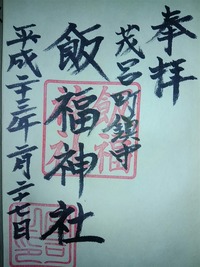 奉拝
茂呂町鎮守
飯福神社
平成二十三年二月二十七日
飯福神社